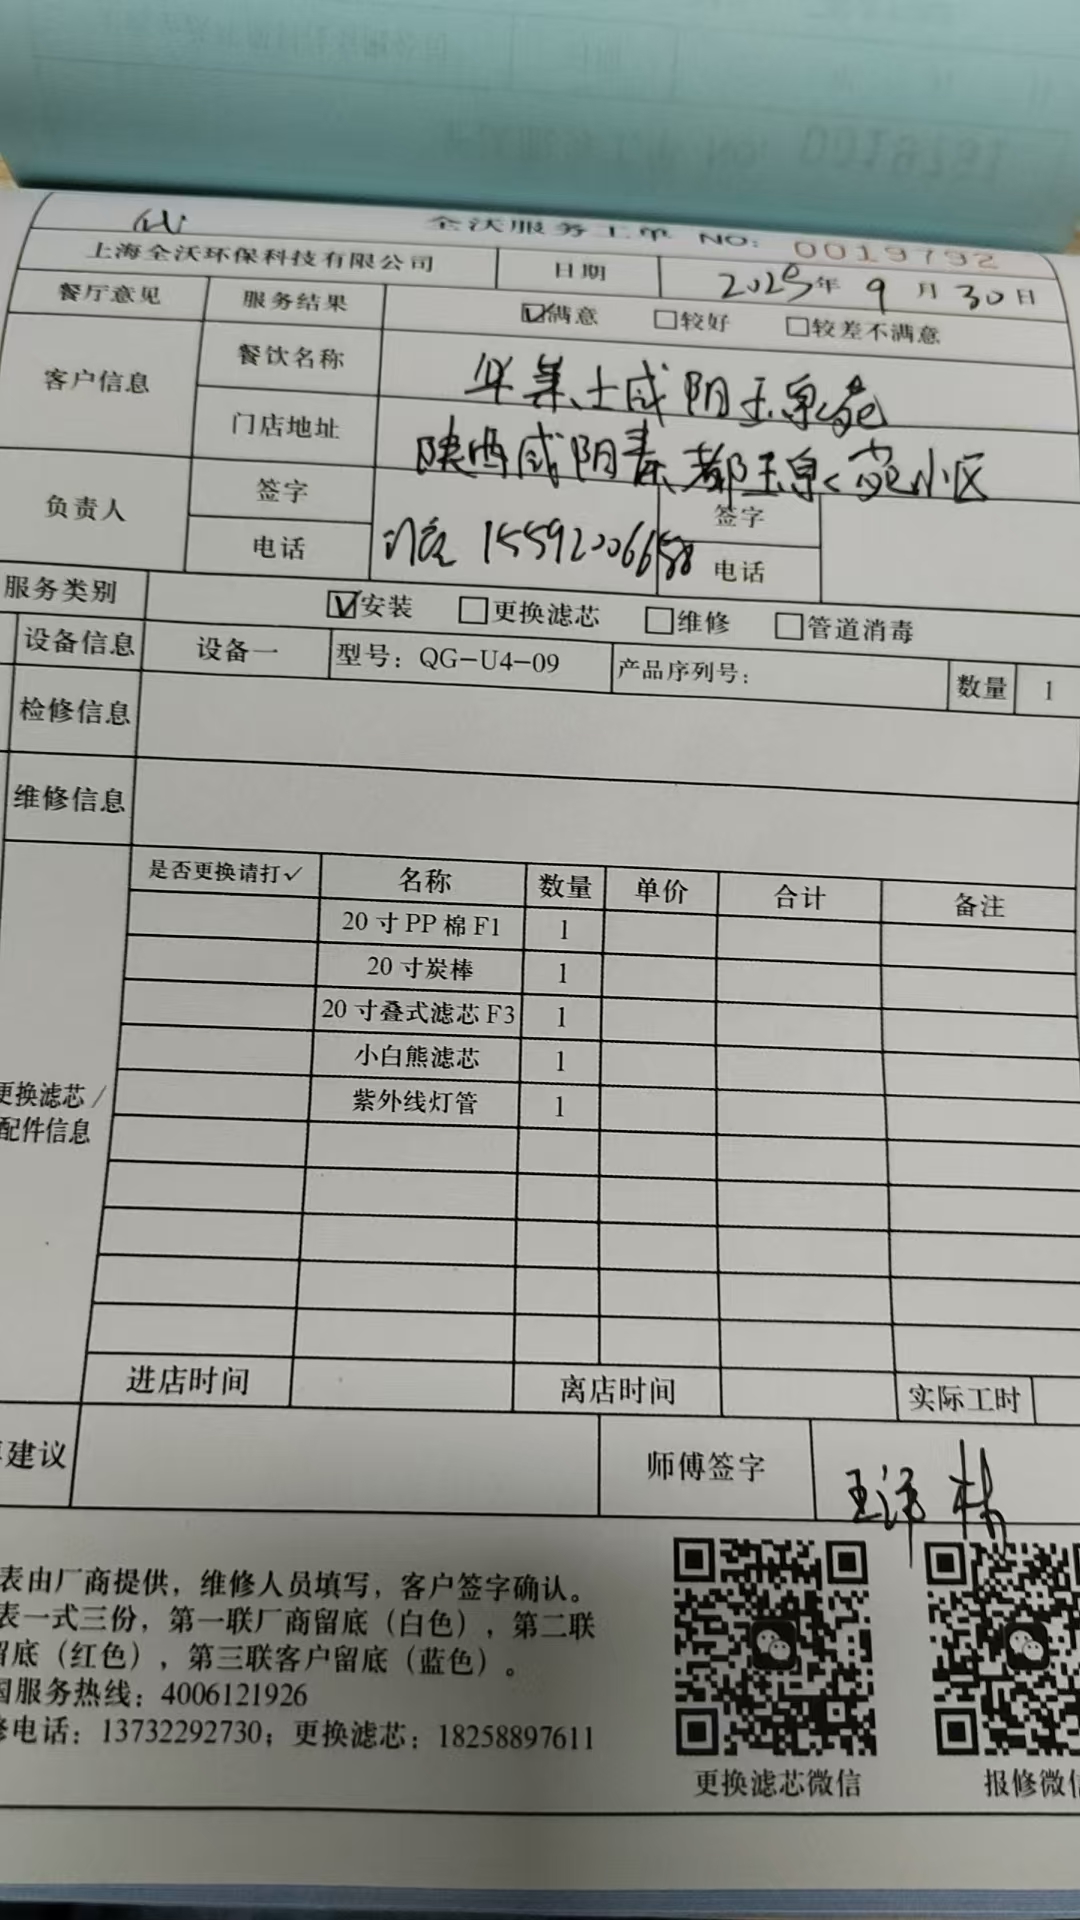 全沃服务工单 NO: 0019792
上海全沃环保科技有限公司 日期 2025年9月30日
餐厅意见 服务结果 ☑满意 □较好 □较差不满意
客户信息 餐饮名称 华莱士咸阳玉泉苑
门店地址 陕西咸阳秦都玉泉苑小区
负责人 签字 签字
电话 15592006658 电话
服务类别 ☑安装 □更换滤芯 □维修 □管道消毒
设备信息 设备一 型号：QG-U4-09 产品序列号： 数量 1
检修信息
维修信息
是否更换请打✓ 名称 数量 单价 合计 备注
20寸PP棉F1 1
20寸炭棒 1
20寸叠式滤芯F3 1
小白熊滤芯 1
紫外线灯管 1
更换滤芯/
配件信息
进店时间 离店时间 实际工时
建议 师傅签字 王 林
表由厂商提供，维修人员填写，客户签字确认。
表一式三份，第一联厂商留底（白色），第二联
留底（红色），第三联客户留底（蓝色）。
国服务热线：4006121926
修电话：13732292730；更换滤芯：18258897611
更换滤芯微信 报修微信